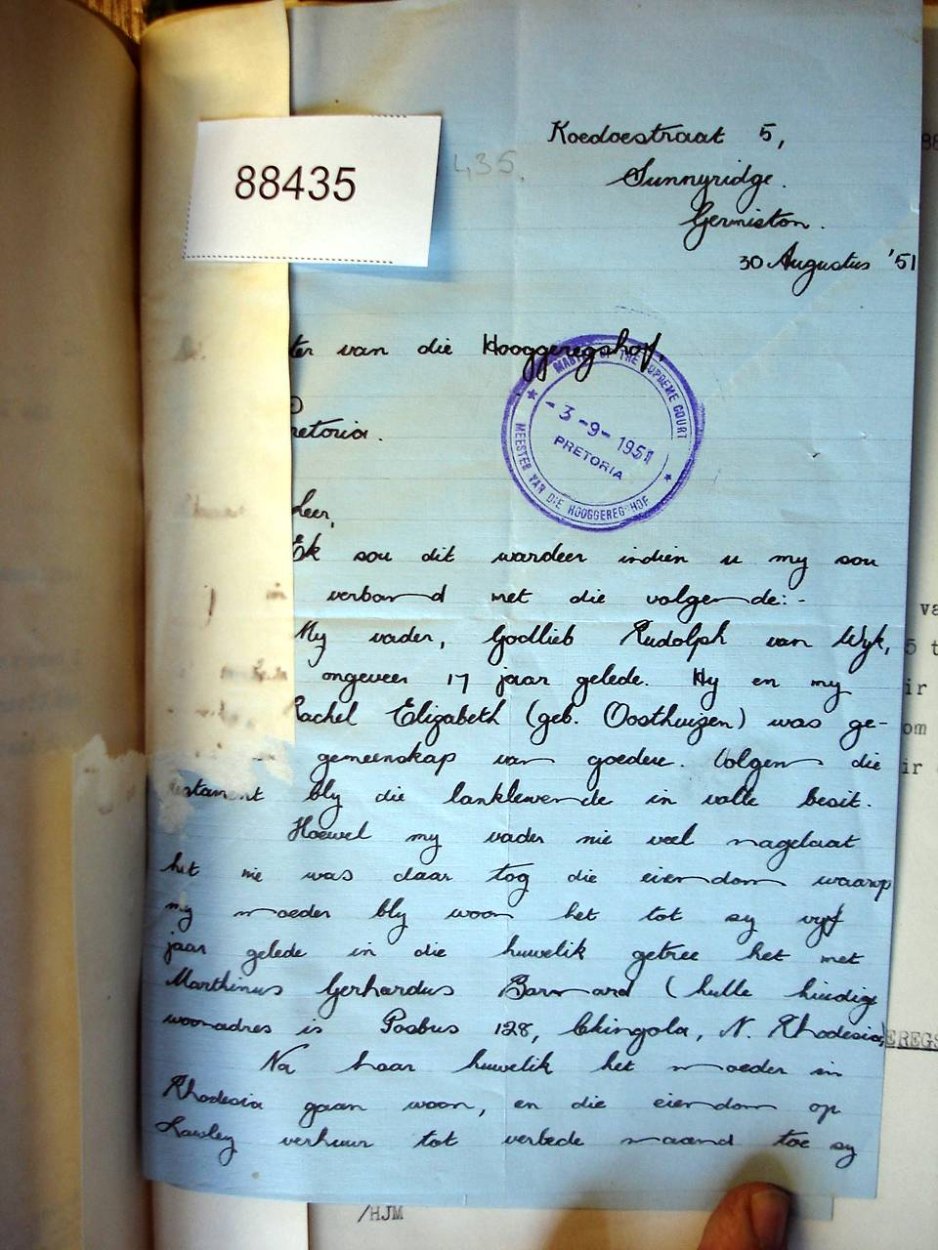 88435
435.
Koedoestraat 5,
Sunnyridge.
Germiston.
30 Augustus '51
ter van die Hooggeregshof,
retoria.
MASTER OF THE SUPREME COURT
- 3 -9- 1951
PRETORIA
MEESTER VAN DIE HOOGGEREGSHOF
Heer,
Ek sou dit wardeer indien u my sou
in verband met die volgende:-
My vader, Godlieb Rudolph van Wyk,
ongeveer 17 jaar gelede. Hy en my
Rachel Elizabeth (geb. Oosthuizen) was ge-
gemeenskap van goedere. Volgens die
estament bly die lanklewende in volle besit.
Hoewel my vader nie veel nagelaat
het nie was daar tog die eiendom waarop
my moeder bly woon het tot sy vyf
jaar gelede in die huwelik getree het met
Marthinus Gerhardus Barnard (hulle huidige
woonadres is Posbus 128, Chingola, N. Rhodesia)
Na haar huwelik het moeder in
Rhodesia gaan woon, en die eiendom op
Lawley verhuur tot verlede maand toe sy
va
5 t
ir
om
ir
EREGS
/HJM